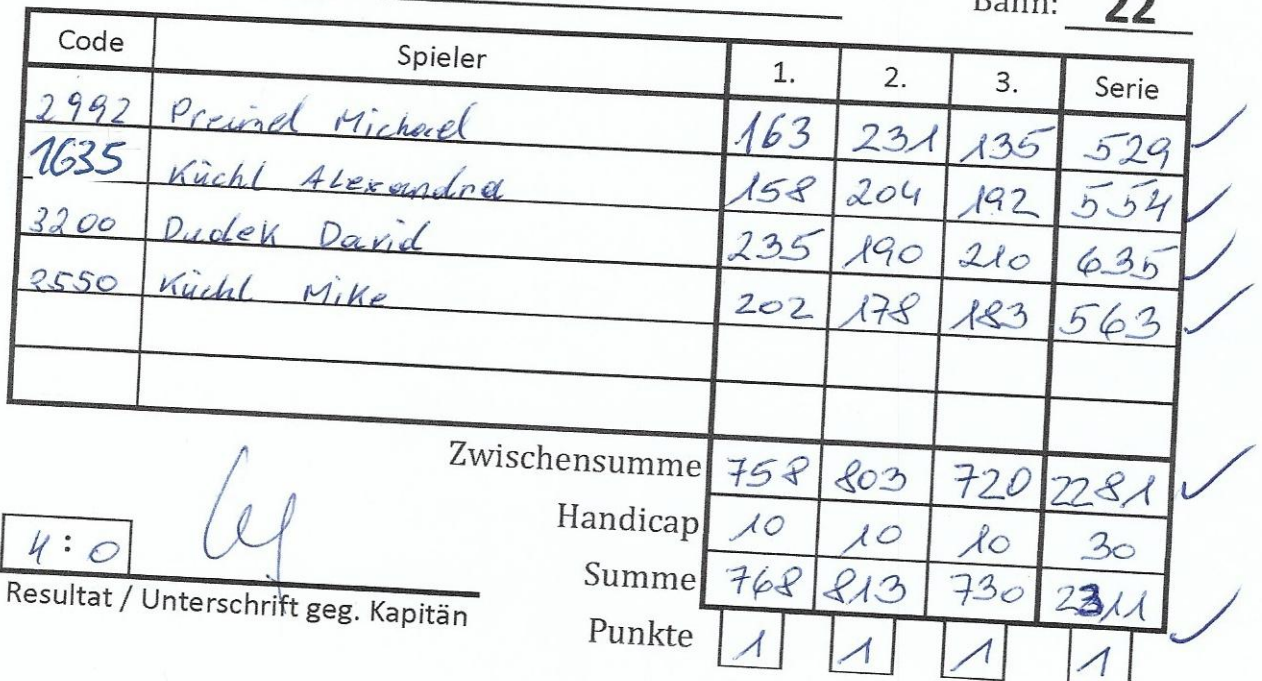 Bahn: 22
Code Spieler 1. 2. 3. Serie
2992 Preimel Michael 163 231 135 529
1635 Küchl Alexandra 158 204 192 554
3200 Dudek David 235 190 210 635
2550 Küchl Mike 202 178 183 563
Zwischensumme 758 803 720 2281
Handicap 10 10 10 30
4:0 Summe 768 813 730 2311
Resultat / Unterschrift geg. Kapitän
Punkte 1 1 1 1